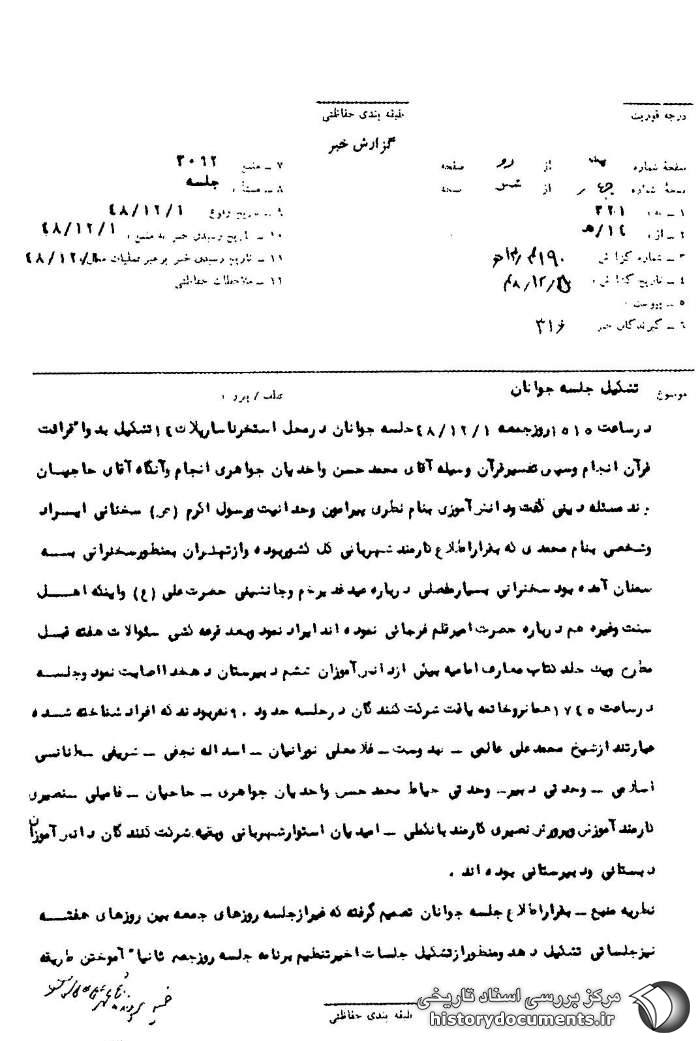 درجه فوریت
طبقه بندی حفاظتی
گزارش خبر
صفحه شماره یک از دو صفحه
نسخه شماره چهار از شش نسخه
۱ ـ به : ۳۲۱
۲ ـ از : ۱۴/هـ
۳ ـ شماره گزارش
۴ ـ تاریخ گزارش :
۵ ـ پیوست :
۶ ـ گیرندگان خبر ۳۱۶
۷ ـ منبع ۳۰۶۲
۸ ـ منشاء : جلسه
۹ ـ تاریخ وقوع ۴۸/۱۲/۱
۱۰ ـ تاریخ رسیدن خبر به منبع : ۴۸/۱۲/۱
۱۱ ـ تاریخ رسیدن خبر برهبر عملیات محل
۱۲ ـ ملاحظات حفاظتی
موضوع تشکیل جلسه جوانان
عطف / پیرو :
درساعت ۱۵۱۵ روزجمعه ۴۸/۱۲/۱ جلسه جوانان درمحل استخرناسار پلاک ۱۴ تشکیل بدوا" قرائت
قرآن انجام وسپس تفسیرقرآن وسیله آقای محمدحسن واحدیان جواهری انجام وآنگاه آقای حاجیان
چند مسئله دینی گفت ودانش آموزی بنام نظری پیرامون وحدانیت ورسول اکرم (ص) سخنانی ایراد
وشخصی بنام محمدی که بقراراطلاع کارمند شهربانی کل کشوربوده وازتهران بمنظورسخنرانی به
سمنان آمده بود سخنرانی بسیارمفصلی درباره عید غدیرخم وجانشینی حضرت علی (ع) واینکه اهل
سنت وغیره هم درباره حضرت امیرقلم فرسائی نموده اند ایراد نمود وبعد قرعه کشی سئوالات هفته قبل
مطرح ویک جلد کتاب معارف امامیه بیکی ازدانش آموزان ششم دبیرستان دهخدا اصابت نمود وجلسه
درساعت ۱۷۴۵ همانروزخاتمه یافت شرکت کنندگان درجلسه حدود ۹۰ نفربودند که افراد شناخته شده
عبارتند ازشیخ محمدعلی عالمی ـ ـ غلامعلی نورانیان ـ اسداله نجفی ـ شریفی
اسلامی ـ وحدتی دبیر ـ وحدتی خیاط محمدحسن واحدیان جواهری ـ حاجیان ـ فامیلی ـ نصیری
کارمند آموزش وپرورش نصیری کارمند بانک ملی ـ امیدیان استوارشهربانی وبقیه شرکت کنندگان دانش آموزان
دبستانی ودبیرستانی بوده اند .
نظریه منبع ـ بقراراطلاع جلسه جوانان تصمیم گرفته که غیرازجلسه روزهای جمعه بین روزهای هفته
نیزجلساتی تشکیل دهد ومنظورازتشکیل جلسات اخیرتنظیم برنامه جلسه روزجمعه ثانیا" آموختن طریقه
طبقه بندی حفاظتی
مرکز بررسی اسناد تاریخی
historydocuments.ir